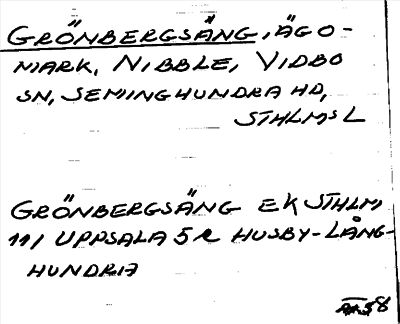 GRÖNBERGSÄNG, ÄGO-
MARK, NIBBLE, VIDBO
SN, SEMINGHUNDRA HD,
STHLMS L
GRÖNBERGSÄNG EK STHLM
11/ UPPSALA 5 R HUSBY-LÅNG-
HUNDRA
58